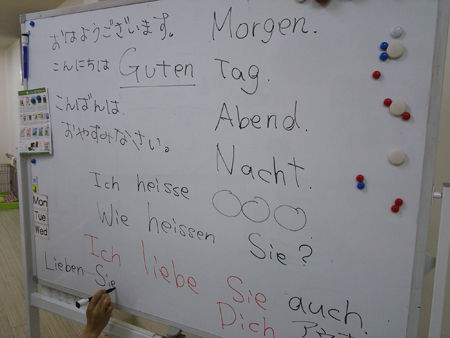 おはようございます。 Morgen.
こんにちは Guten Tag.
こんばんは. Abend.
おやすみなさい。 Nacht.
Ich heisse ○○○
Wie heissen Sie?
Ich liebe Sie auch.
Lieben Sie Dich アウ
Mon
Tue
Wed